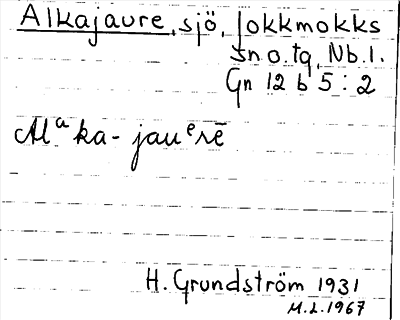 Alkajaure, sjö, Jokkmokks
sn o. tg, Nb.l.
Gn 12 b 5 : 2
Alᵃka-jauᵉrē
H. Grundström 1931
M.L.1967